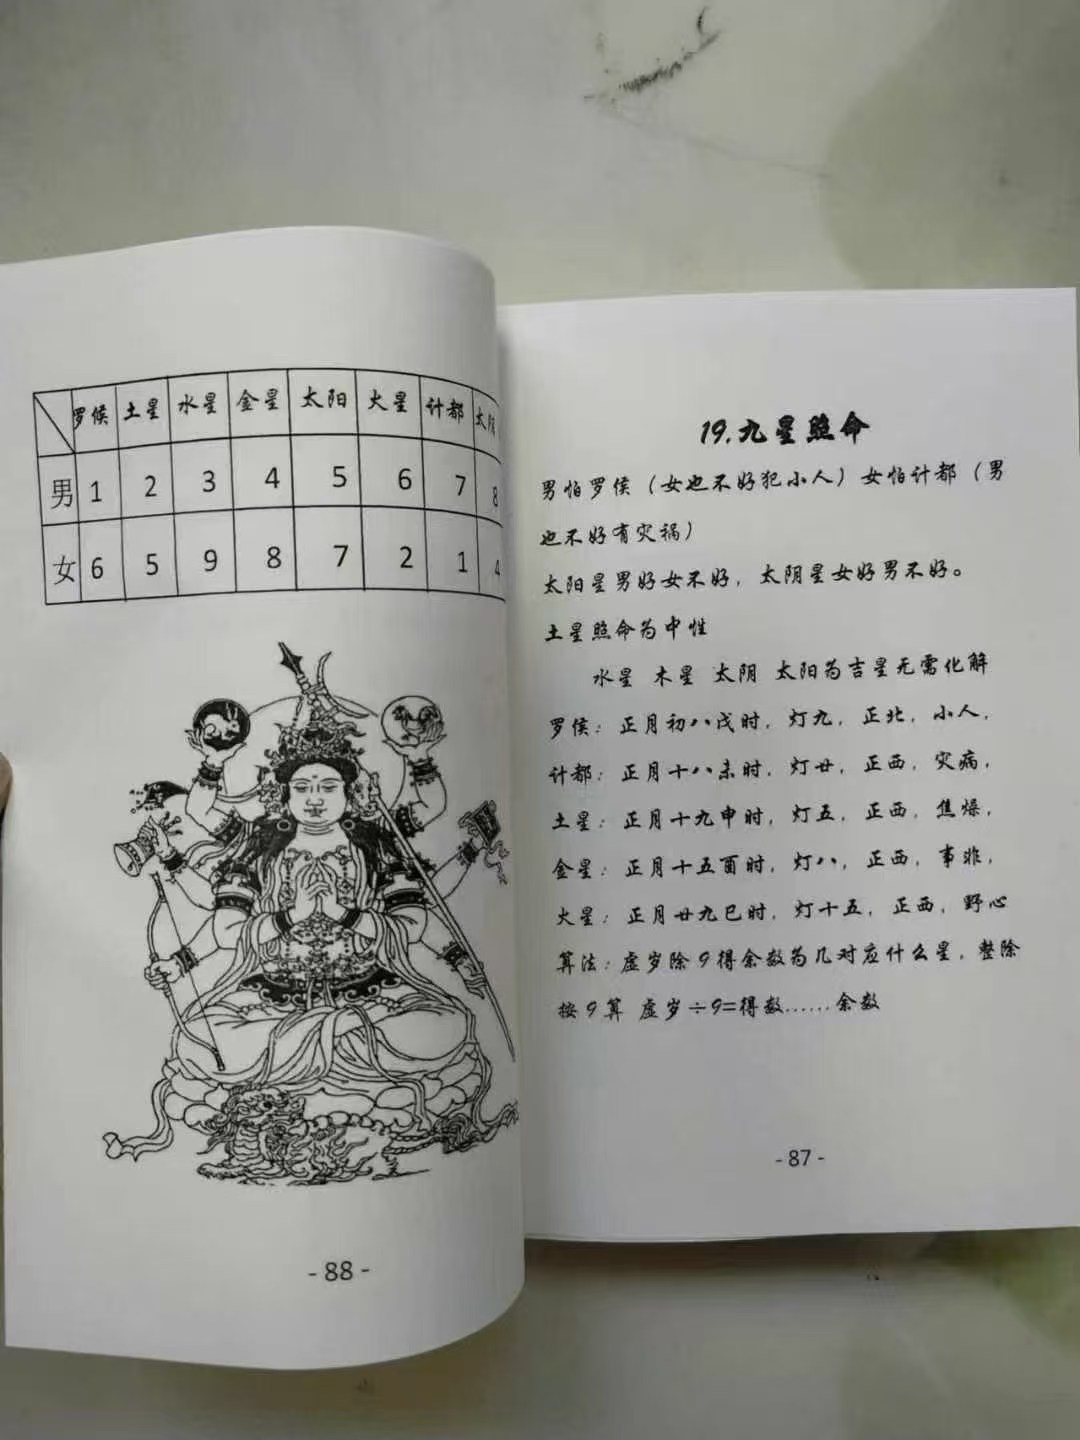 19.九星照命
男怕罗侯（女也不好犯小人）女怕计都（男
也不好有灾祸）
太阳星男好女不好，太阴星女好男不好。
土星照命为中性
水星 木星 太阴 太阳为吉星无需化解
罗侯：正月初八戊时，灯九，正北，小人，
计都：正月十八未时，灯廿，正西，灾病，
土星：正月十九申时，灯五，正西，焦燥，
金星：正月十五酉时，灯八，正西，事非，
火星：正月廿九巳时，灯十五，正西，野心
算法：虚岁除9得余数为几对应什么星，整除
按9算 虚岁÷9=得数……余数
- 87 -
罗候 土星 水星 金星 太阳 火星 计都 太阴
男 1 2 3 4 5 6 7 8
女 6 5 9 8 7 2 1 4
- 88 -